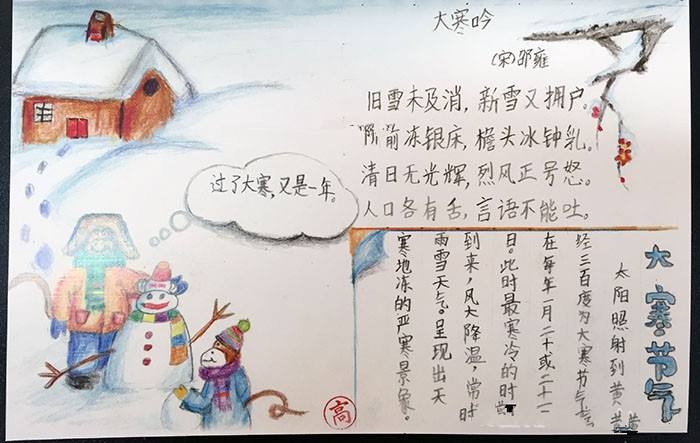 大寒吟
(宋)邵雍
旧雪未及消,新雪又拥户。
阶前冻银床,檐头冰钟乳。
清日无光辉,烈风正号怒。
人口各有舌,言语不能吐。
过了大寒,又是一年。
大寒节气
太阳照射到黄
经三百度为大寒节气
在每年一月二十或二十一
日。此时最寒冷的时
到来,风大降温,常时
雨雪天气。呈现出天
寒地冻的严寒景象。
高